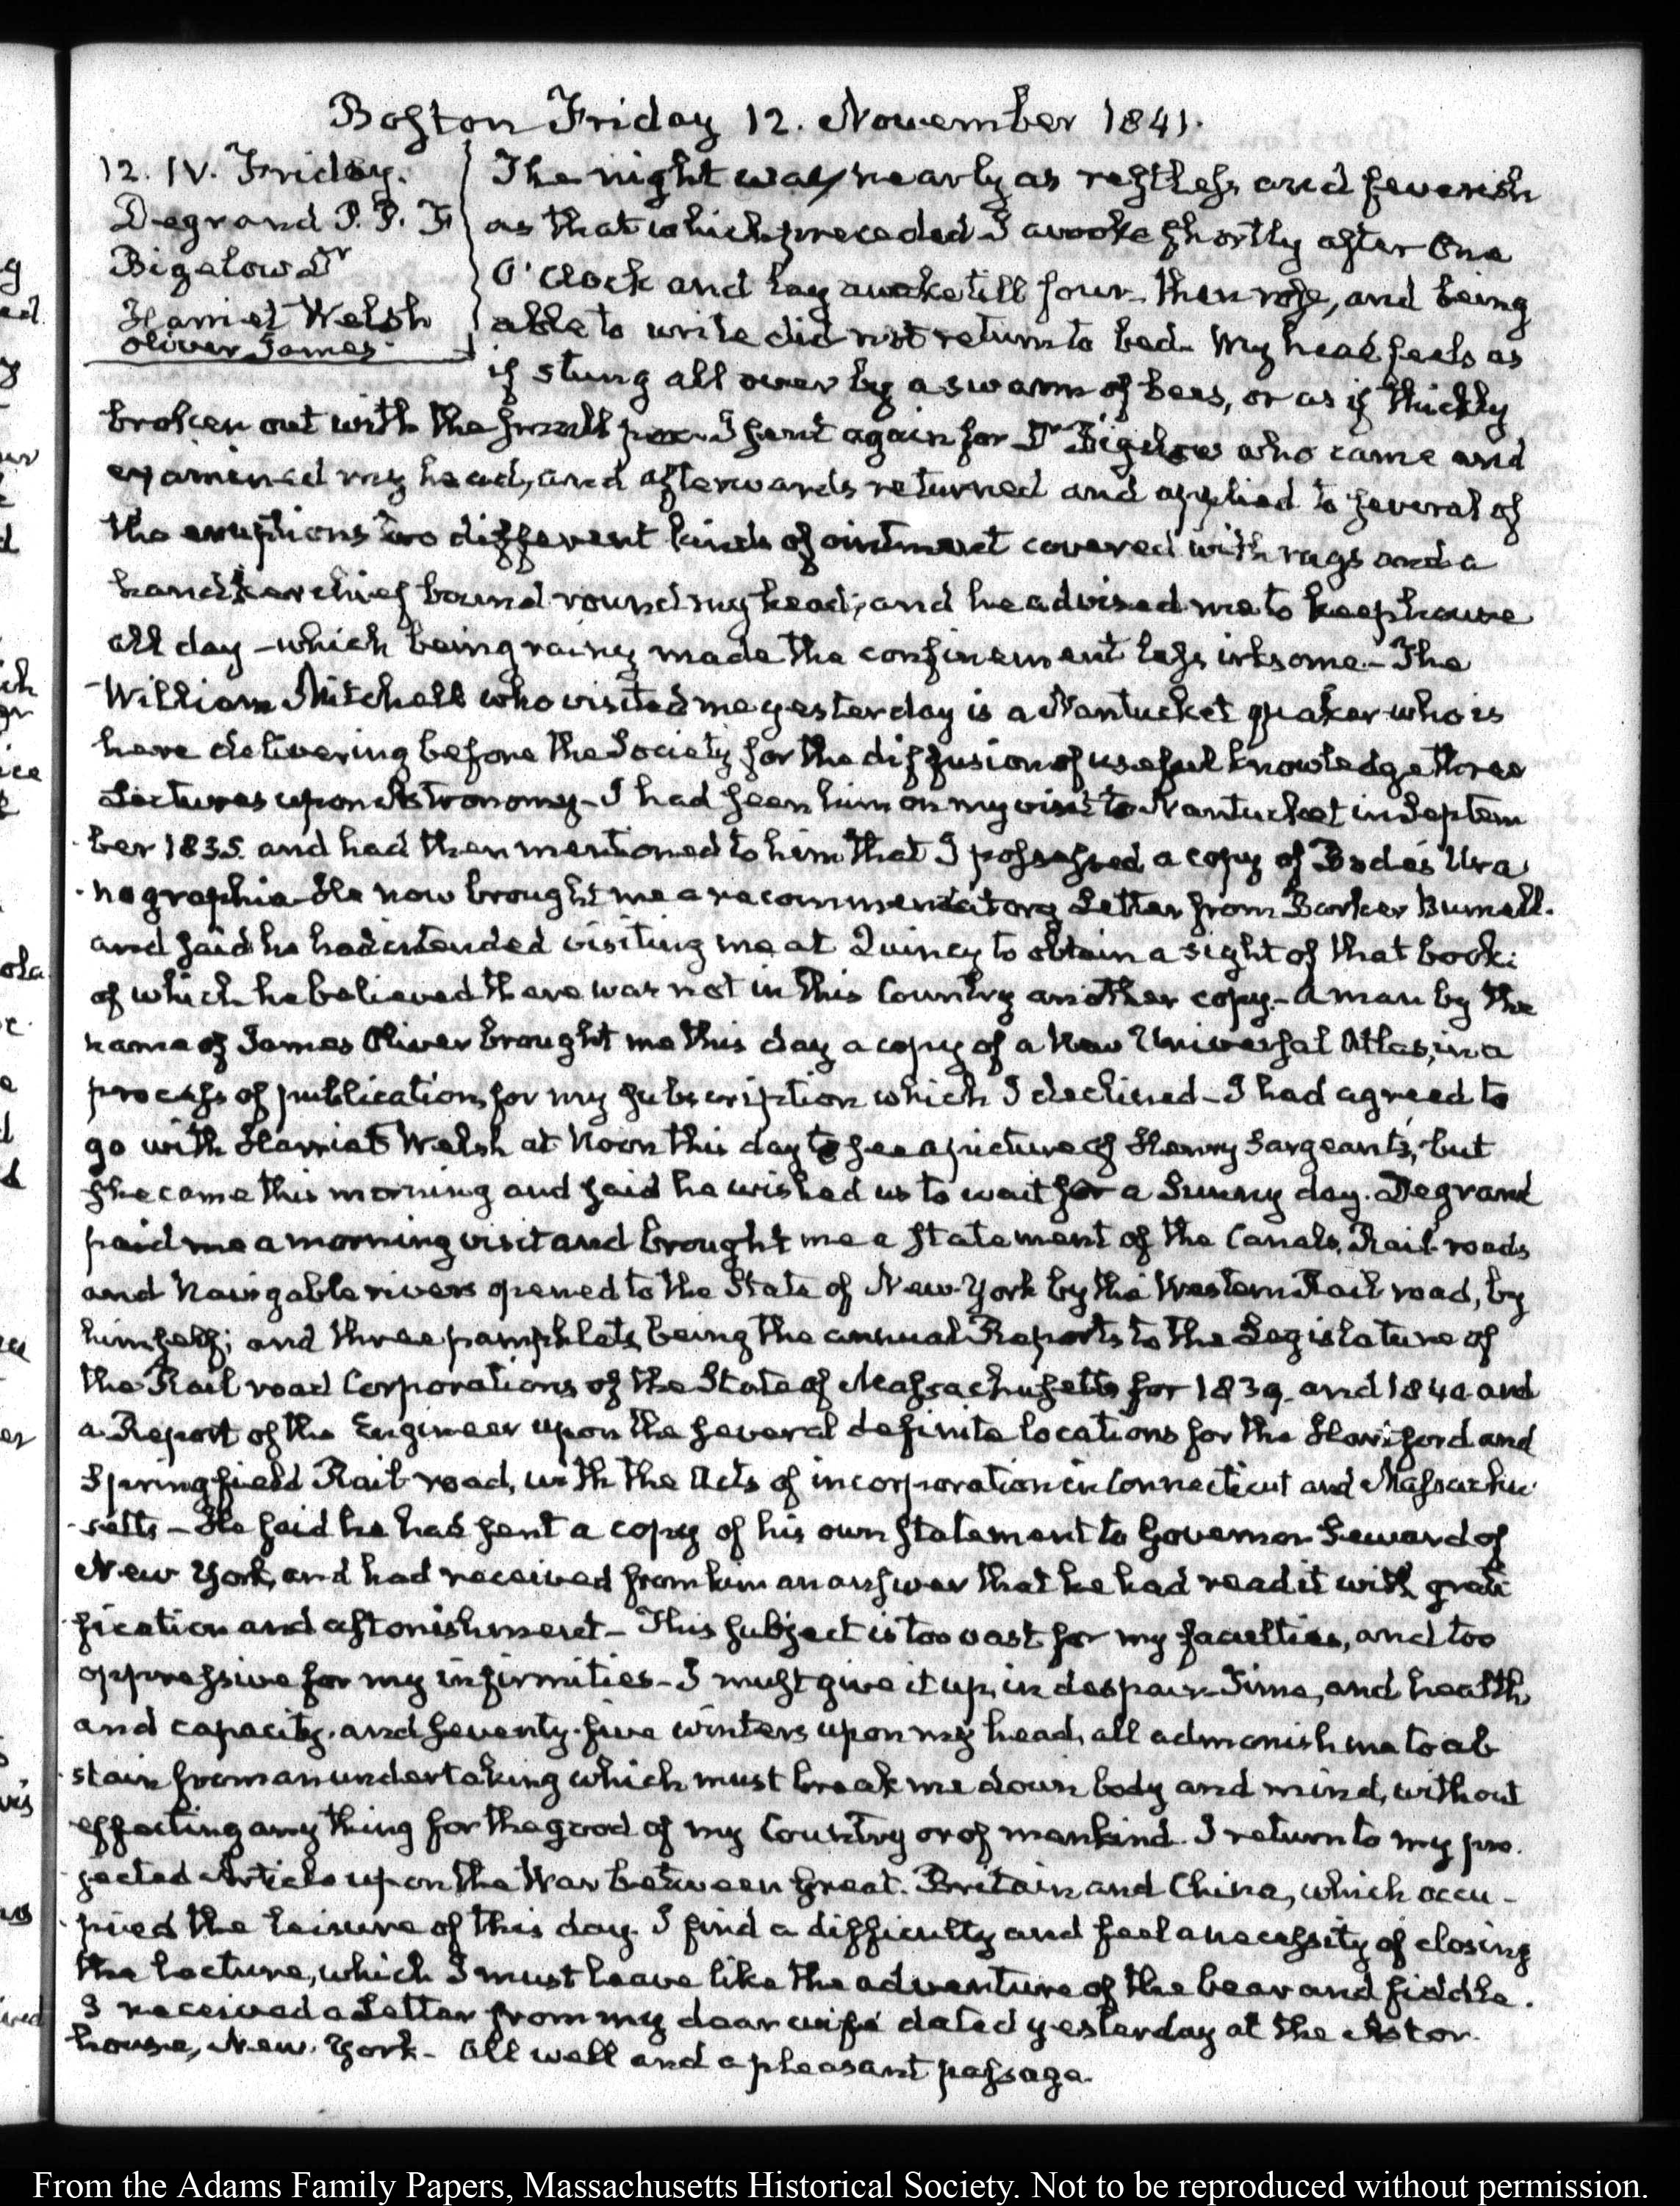 Boston Friday 12. November 1841.
12. IV. Friday.
Degrand P. P. F
Bigelow Dr
Harriet Welsh
Oliver James
The night was nearly as restless and feverish
as that which preceded I awoke shortly after One
O'Clock and lay awake till four. then rose, and being
able to write did not return to bed. My head feels as
if stung all over by a swarm of bees, or as if thickly
broken out with the small pox. I sent again for Dr Bigelow who came and
examined my head, and afterwards returned and applied to several of
the eruptions two different kinds of ointment covered with rags and a
handkerchief bound round my head; and he advised me to keep house
all day - which being rainy made the confinement less irksome - The
William Mitchell who visited me yesterday is a Nantucket quaker who is
here delivering before the Society for the diffusion of useful knowledge three
Lectures upon Astronomy - I had seen him on my visit to Nantucket in Septem
ber 1835. and had then mentioned to him that I possessed a copy of Bode's Ura
nographia - He now brought me a recommendatory Letter from Barker Burnell.
and said he had intended visiting me at Quincy to obtain a sight of that book;
of which he believed there was not in this Country another copy. - A man by the
name of James Oliver brought me this day a copy of a New Universal Atlas, in a
process of publication, for my subscription which I declined - I had agreed to
go with Harriet Welsh at Noon this day to see a picture of Henry Sargeant's, but
she came this morning and said he wished us to wait for a Sunny day. Degrand
paid me a morning visit and brought me a statement of the Canals, Rail-roads
and Navigable rivers opened to the State of New-York by the Western Rail road, by
himself; and three pamphlets, being the annual Reports to the Legislature of
the Rail road Corporations of the State of Massachusetts for 1839. and 1840 and
a Report of the Engineer upon the several definite locations for the Hartford and
Springfield Rail road, with the Acts of incorporation in Connecticut and Massachu
setts - He said he had sent a copy of his own statement to Governor Seward of
New York, and had received from him an answer that he had read it with grati
fication and astonishment - This subject is too vast for my faculties, and too
oppressive for my infirmities - I must give it up, in despair - Time, and health
and capacity, and seventy-five winters upon my head, all admonish me to ab
stain from an undertaking which must break me down body and mind, without
effecting any thing for the good of my Country or of mankind. I return to my pro
jected Article upon the War between Great-Britain and China, which occu-
pied the leisure of this day. I find a difficulty and feel a necessity of closing
the lecture, which I must leave like the adventure of the bear and fiddle.
I received a Letter from my dear wife dated yesterday at the Astor-
house, New-York - All well and a pleasant passage.
From the Adams Family Papers, Massachusetts Historical Society. Not to be reproduced without permission.